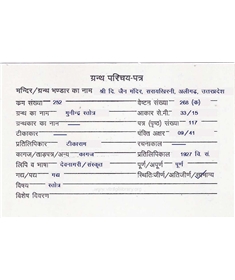 ग्रन्थ परिचय-पत्र
मन्दिर/ग्रन्थ भण्डार का नाम श्री दि. जैन मंदिर, सरायखिरनी, अलीगढ, उत्तरप्रदेश
क्रम संख्या 252 वेष्टन संख्या 268 (क)
ग्रन्थ का नाम मुनीन्द्र स्तोत्र आकार से.मी. 33/15
ग्रन्थकार का नाम पत्र (पृष्ठ) संख्या 117
टीकाकार पंक्ति अक्षर 09/41
प्रतिलिपिकार टीकाराम रचनाकाल
कागज/ताड़पत्र/अन्य कागज प्रतिलिपिकाल 1927 वि. सं.
लिपि व भाषा देवनागरी/संस्कृत पूर्ण/अपूर्ण पूर्ण
गद्य/पद्य पद्य स्थिति:जीर्ण/अतिजीर्ण/सामान्य
विषय स्तोत्र
विशेष विवरण